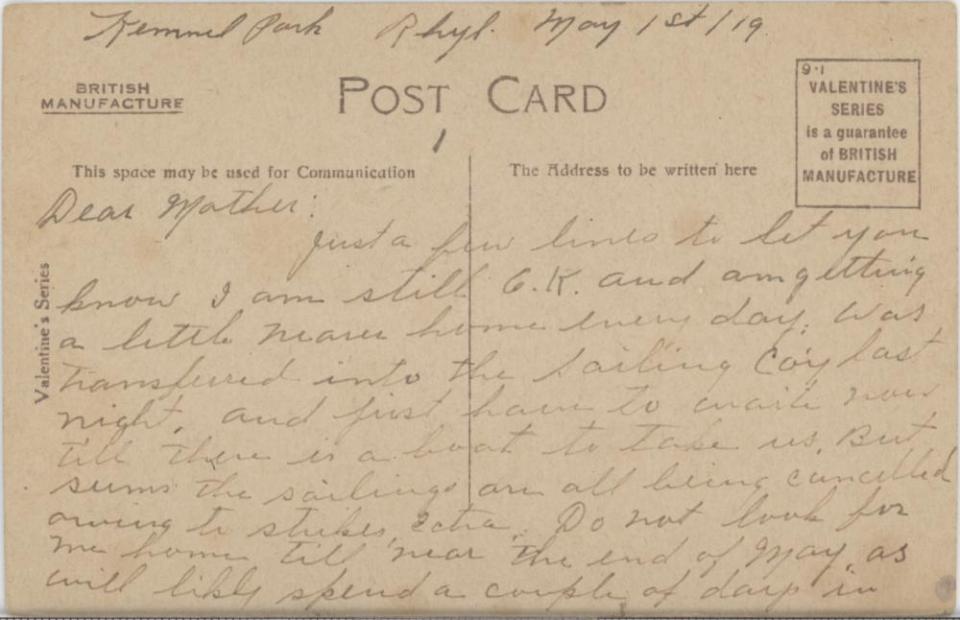 Kemmel Park Rhyl. May 1st/19
BRITISH
MANUFACTURE
POST CARD
1
9.1
VALENTINE'S
SERIES
is a guarantee
of BRITISH
MANUFACTURE
This space may be used for Communication
The Address to be written here
Valentine's Series
Dear Mother:
just a few lines to let you
know I am still O.K. and am getting
a little nearer home every day. Was
transferred into the sailing Coy last
night, and just have to wait now
till there is a boat to take us. But
seems the sailings are all being cancelled
owing to strikes, ectra. Do not look for
me home till near the end of May, as
will likly spend a couple of days in